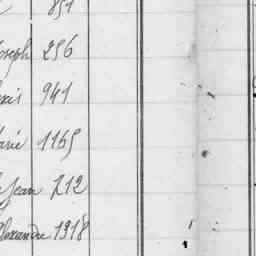 851
Joseph 256
xis 941
arie 1165
Jean 212
Alexandre 1918